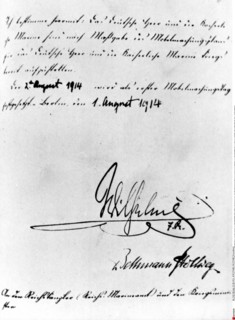 Ich bestimme hiermit: Das Deutsche Heer und die Kaiserliche
Marine sind nach Maßgabe des Mobilmachungsplans
für das Deutsche Heer und die Kaiserliche Marine kriegs
bereit aufzustellen.
Der 2. August 1914 wird als erster Mobilmachungstag
festgesetzt. Berlin, den 1. August 1914
Wilhelm
I.R.
Bethmann Hollweg
An den Reichskanzler (Reichs-Marineamt) und den Kriegsminister